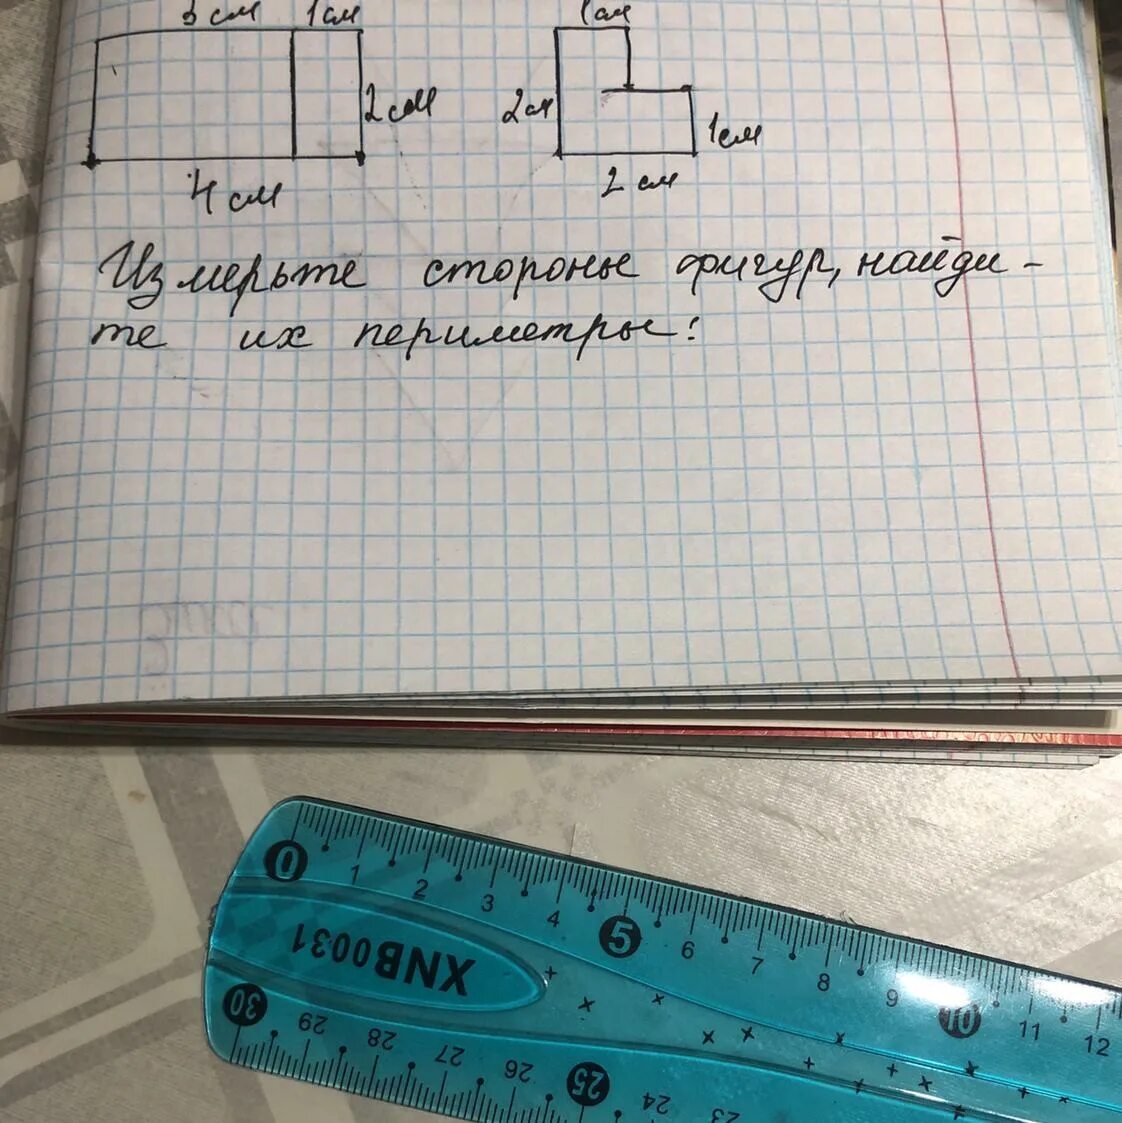 3 см 1см 1см
2см 2см 1см
4 см 2 см
Измерьте стороны фигур, найди-
те их периметры!
0 1 2 3 4 5 6 7 8 9 10 11 12
XNB0031
30 29 28 27 26 25 24 23